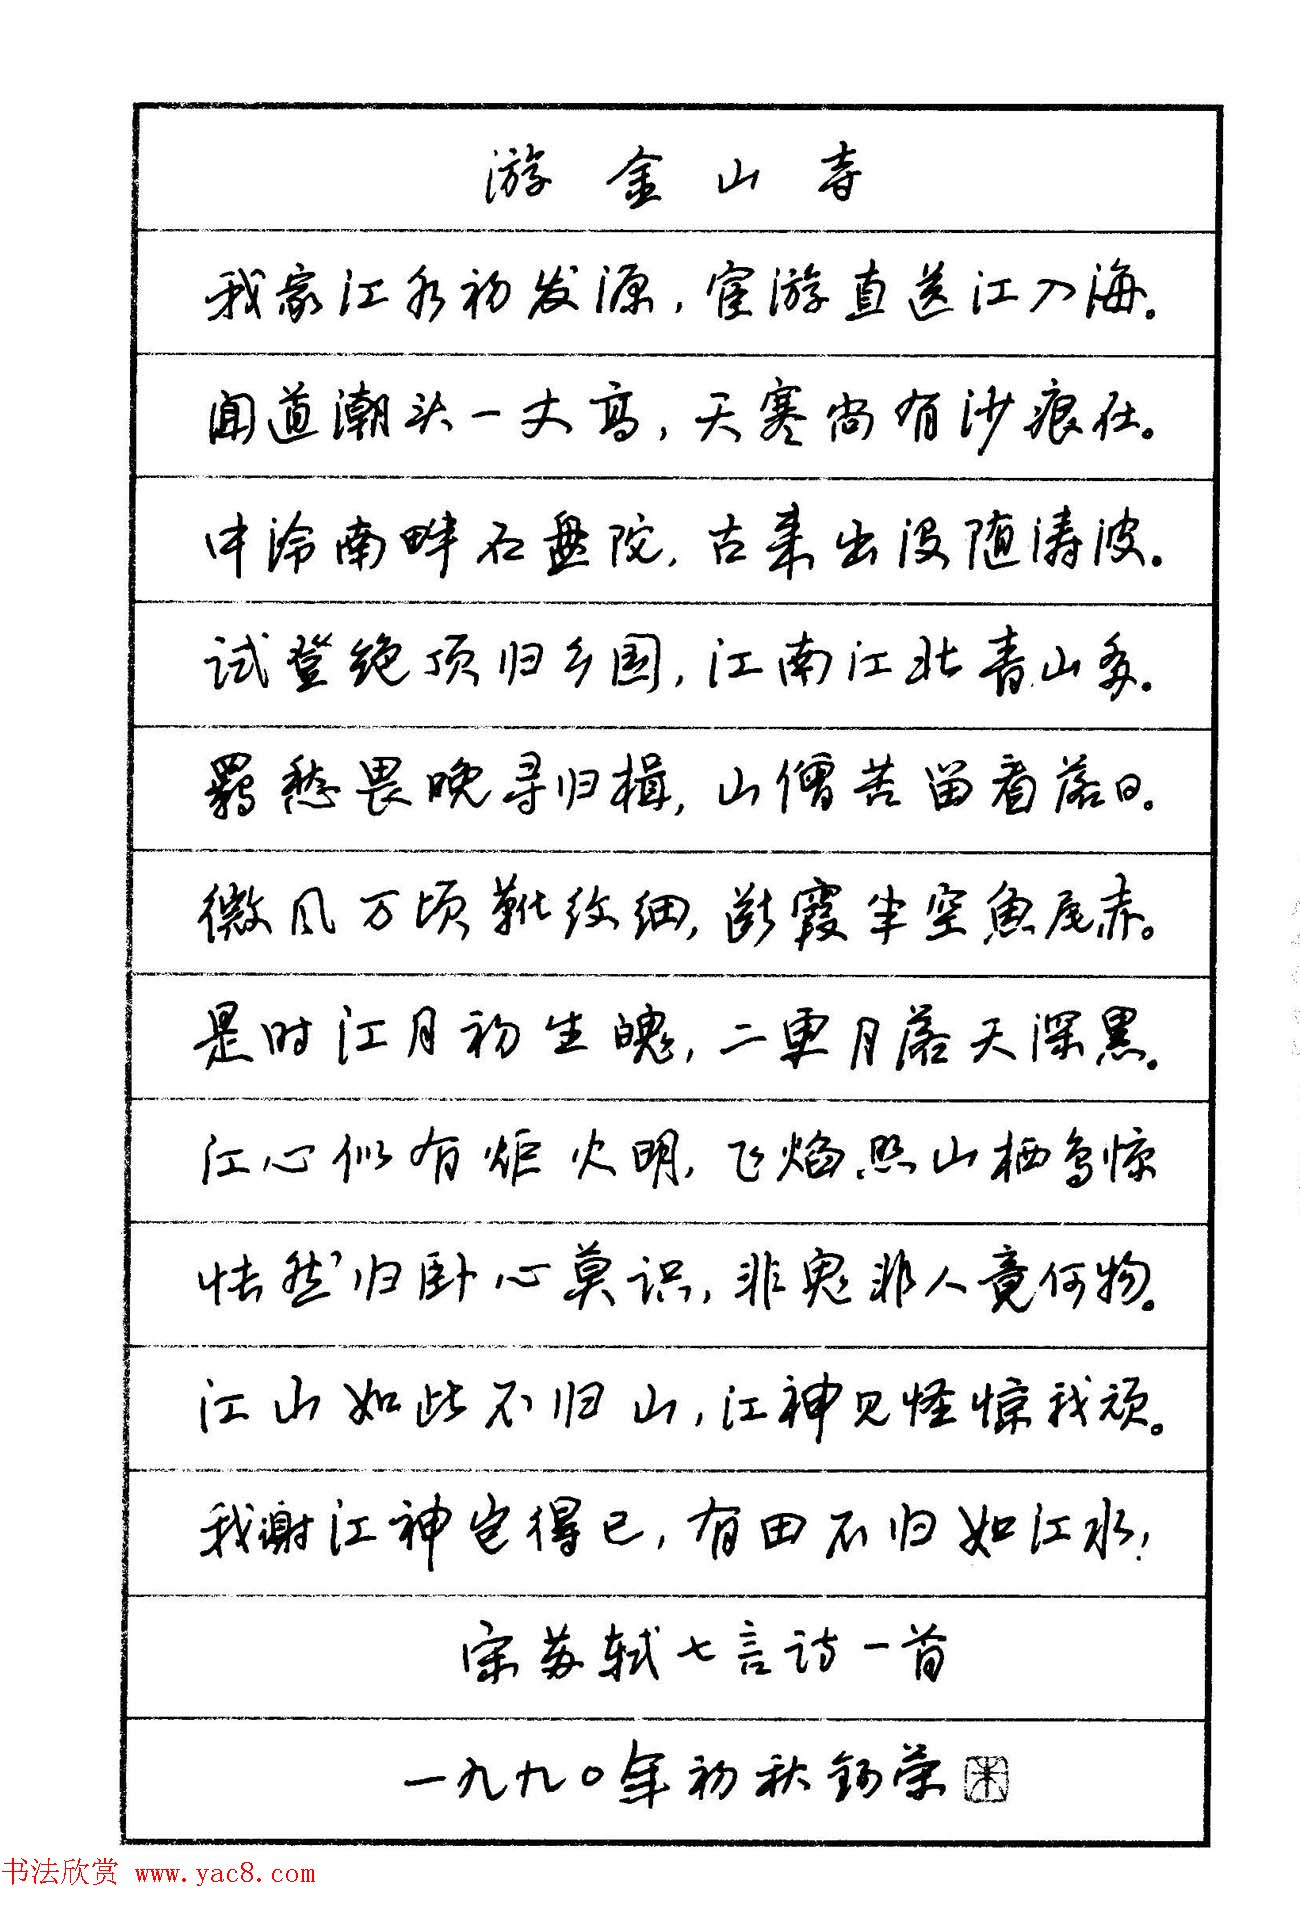 游金山寺
我家江水初发源，宦游直送江入海。
闻道潮头一丈高，天寒尚有沙痕在。
中泠南畔石盘陀，古来出没随涛波。
试登绝顶归乡国，江南江北青山多。
羁愁畏晚寻归楫，山僧苦留看落日。
微风万顷靴纹细，断霞半空鱼尾赤。
是时江月初生魄，二更月落天深黑。
江心似有炬火明，飞焰照山栖鸟惊
怅然归卧心莫识，非鬼非人竟何物。
江山如此不归山，江神见怪惊我顽。
我谢江神岂得已，有田不归如江水！
宋苏轼七言诗一首
一九九〇年初秋锡荣
书法欣赏 www.yac8.com